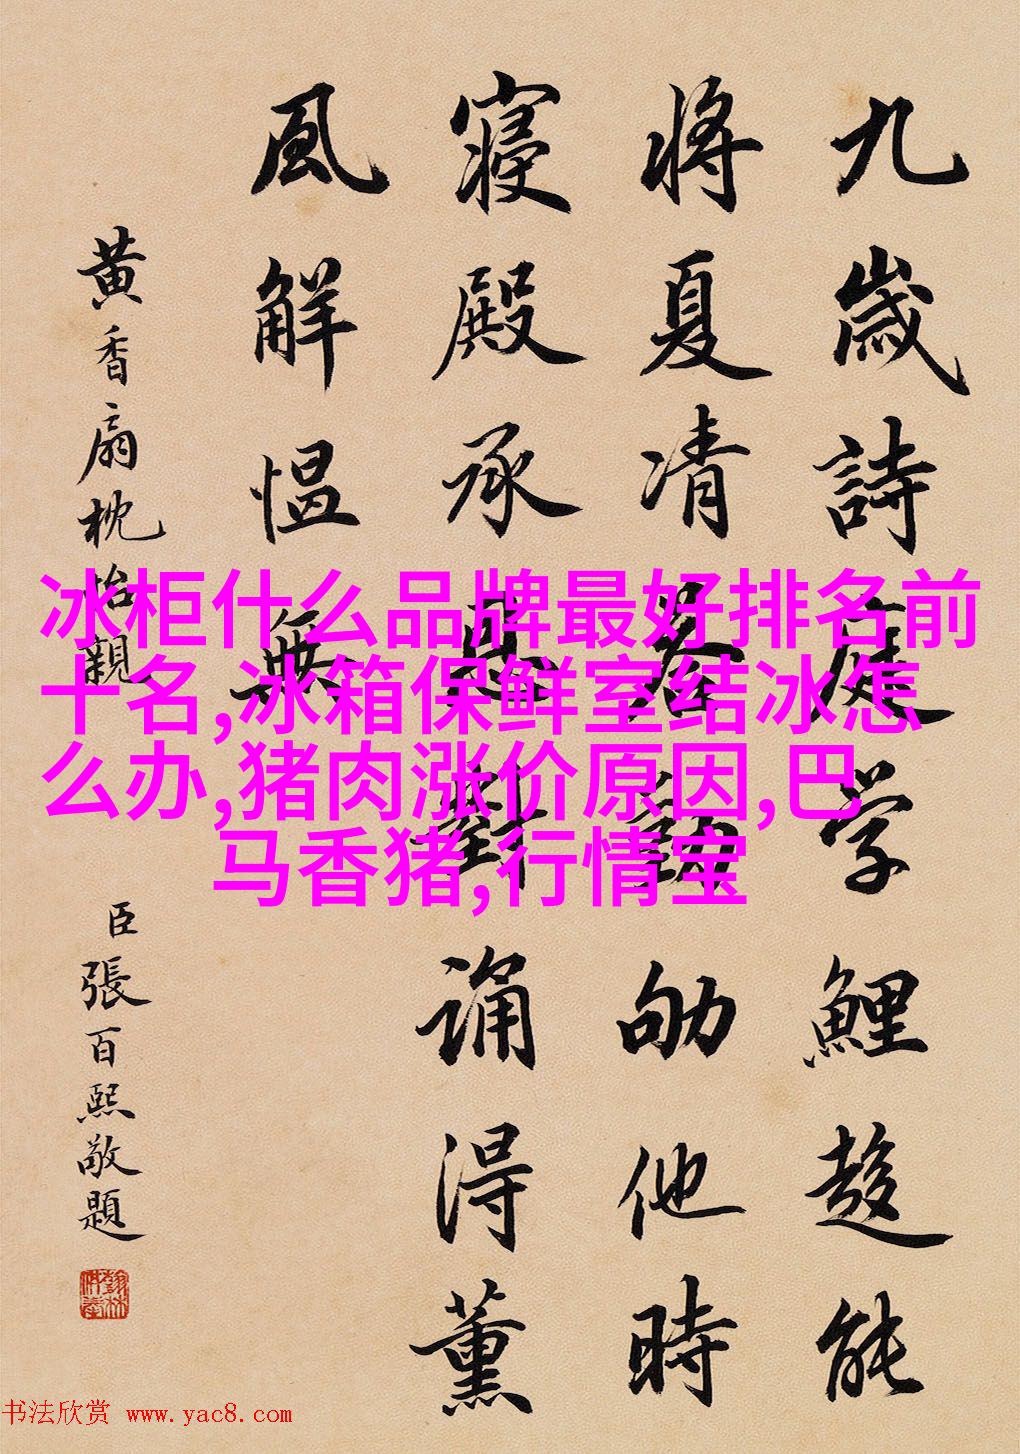 九歲詩庭學鯉趨能
將夏凊答勤劬他時
寢殿承恩對誦得薰
風解慍無
黃香扇枕怡親
臣張百熙敬題
冰柜什么品牌最好排名前
十名,冰箱保鲜室结冰怎
么办,猪肉涨价原因,巴
马香猪,行情宝
书法欣赏 www.yac8.com